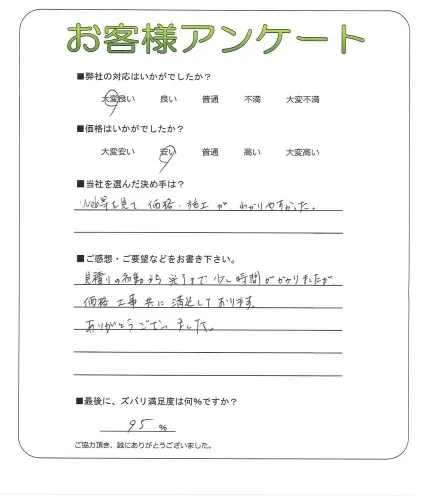 お客様アンケート
■弊社の対応はいかがでしたか？
大変良い 良い 普通 不満 大変不満
■価格はいかがでしたか？
大変安い 安い 普通 高い 大変高い
■当社を選んだ決め手は？
Web等を見て 価格・施工が わかりやすかった。
■ご感想・ご要望などをお書き下さい。
見積りの 完了まで 少し時間がかかりましたが
価格 工事 共に 満足しております。
ありがとうございました。
■最後に、ズバリ満足度は何％ですか？
95 ％
ご協力頂き、誠にありがとうございました。